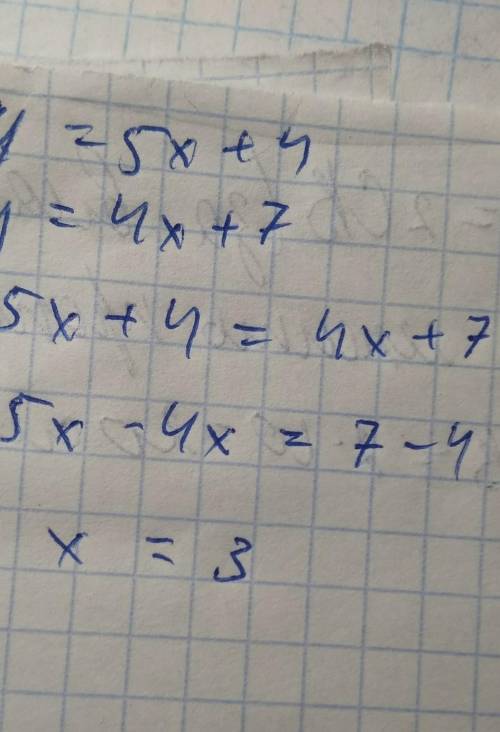 y = 5x + 4
y = 4x + 7
5x + 4 = 4x + 7
5x - 4x = 7 - 4
x = 3